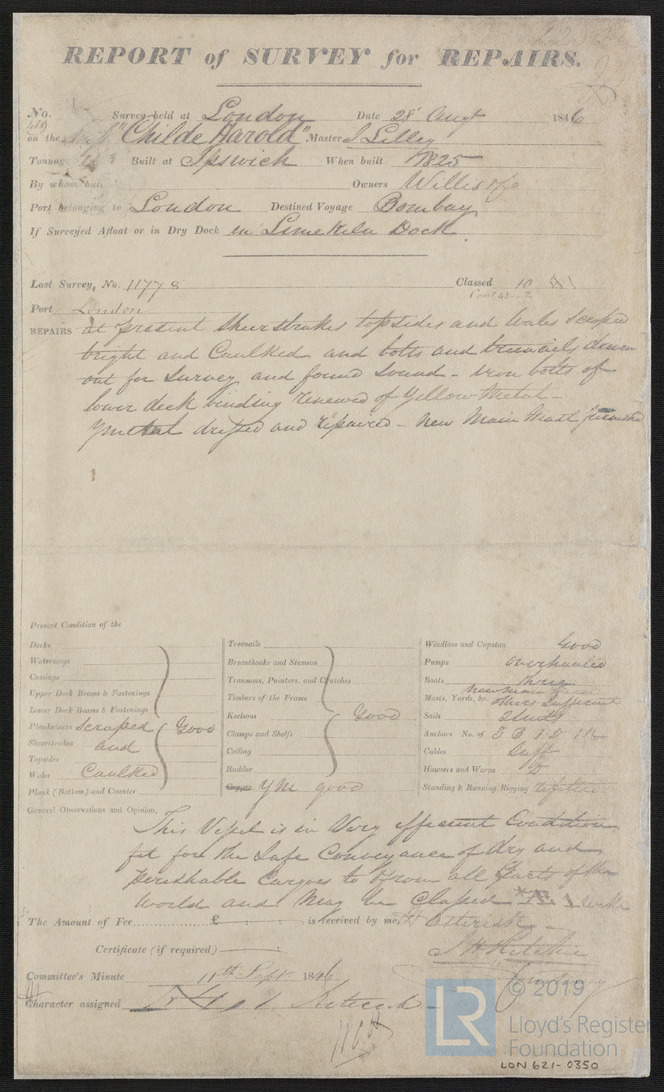 REPORT of SURVEY for REPAIRS.
No. Survey held at London Date 28 Augt 1846
on the Ship "Childe Harold" Master J Lilley
Tonnage Built at Ipswich When built 1825
By whom built Owners Willis & Co
Port belonging to London Destined Voyage Bombay
If Surveyed Afloat or in Dry Dock in Limekiln Dock
Last Survey, No. 11778 Classed 10 A1
Port London
REPAIRS at present Sheerstrakes topsides and Wales scraped
bright and Caulked and bolts and treenails driven
out for Survey and found Sound - Iron bolts of
lower deck binding renewed of Yellow Metal -
Ymetal drifted and repaired - New Main Mast
Present Condition of the
Decks
Waterways
Comings
Upper Deck Beams & Fastenings
Lower Deck Beams & Fastenings
Planksheers scraped Good
Sheerstrakes and
Topsides
Wales Caulked
Plank (Bottom) and Counter
Treenails
Breasthooks and Stemson
Transoms, Pointers, and Crutches
Timbers of the Frame
Keelsons Good
Clamps and Shelfs
Ceiling
Rudder
Copper YM good
Windlass and Capstan Good
Pumps overhauled
Boats three
Masts, Yards, &c. new main others sufficient
Sails
Anchors No. of 3 B 1 S 1 K
Cables Suff
Hawsers and Warps Do
Standing & Running Rigging
General Observations and Opinion,
This Vessel is in Very efficient Condition
fit for the Safe Conveyance of dry and
perishable Cargoes to & from all parts of the
World and May be Classed with
The Amount of Fee £ is received by me, Asterisk -
Certificate (if required) J H Ritchie
Committee's Minute 11th Sept 1846
Character assigned
© 2019
LR
Lloyd's Register
Foundation
LON 621-0350